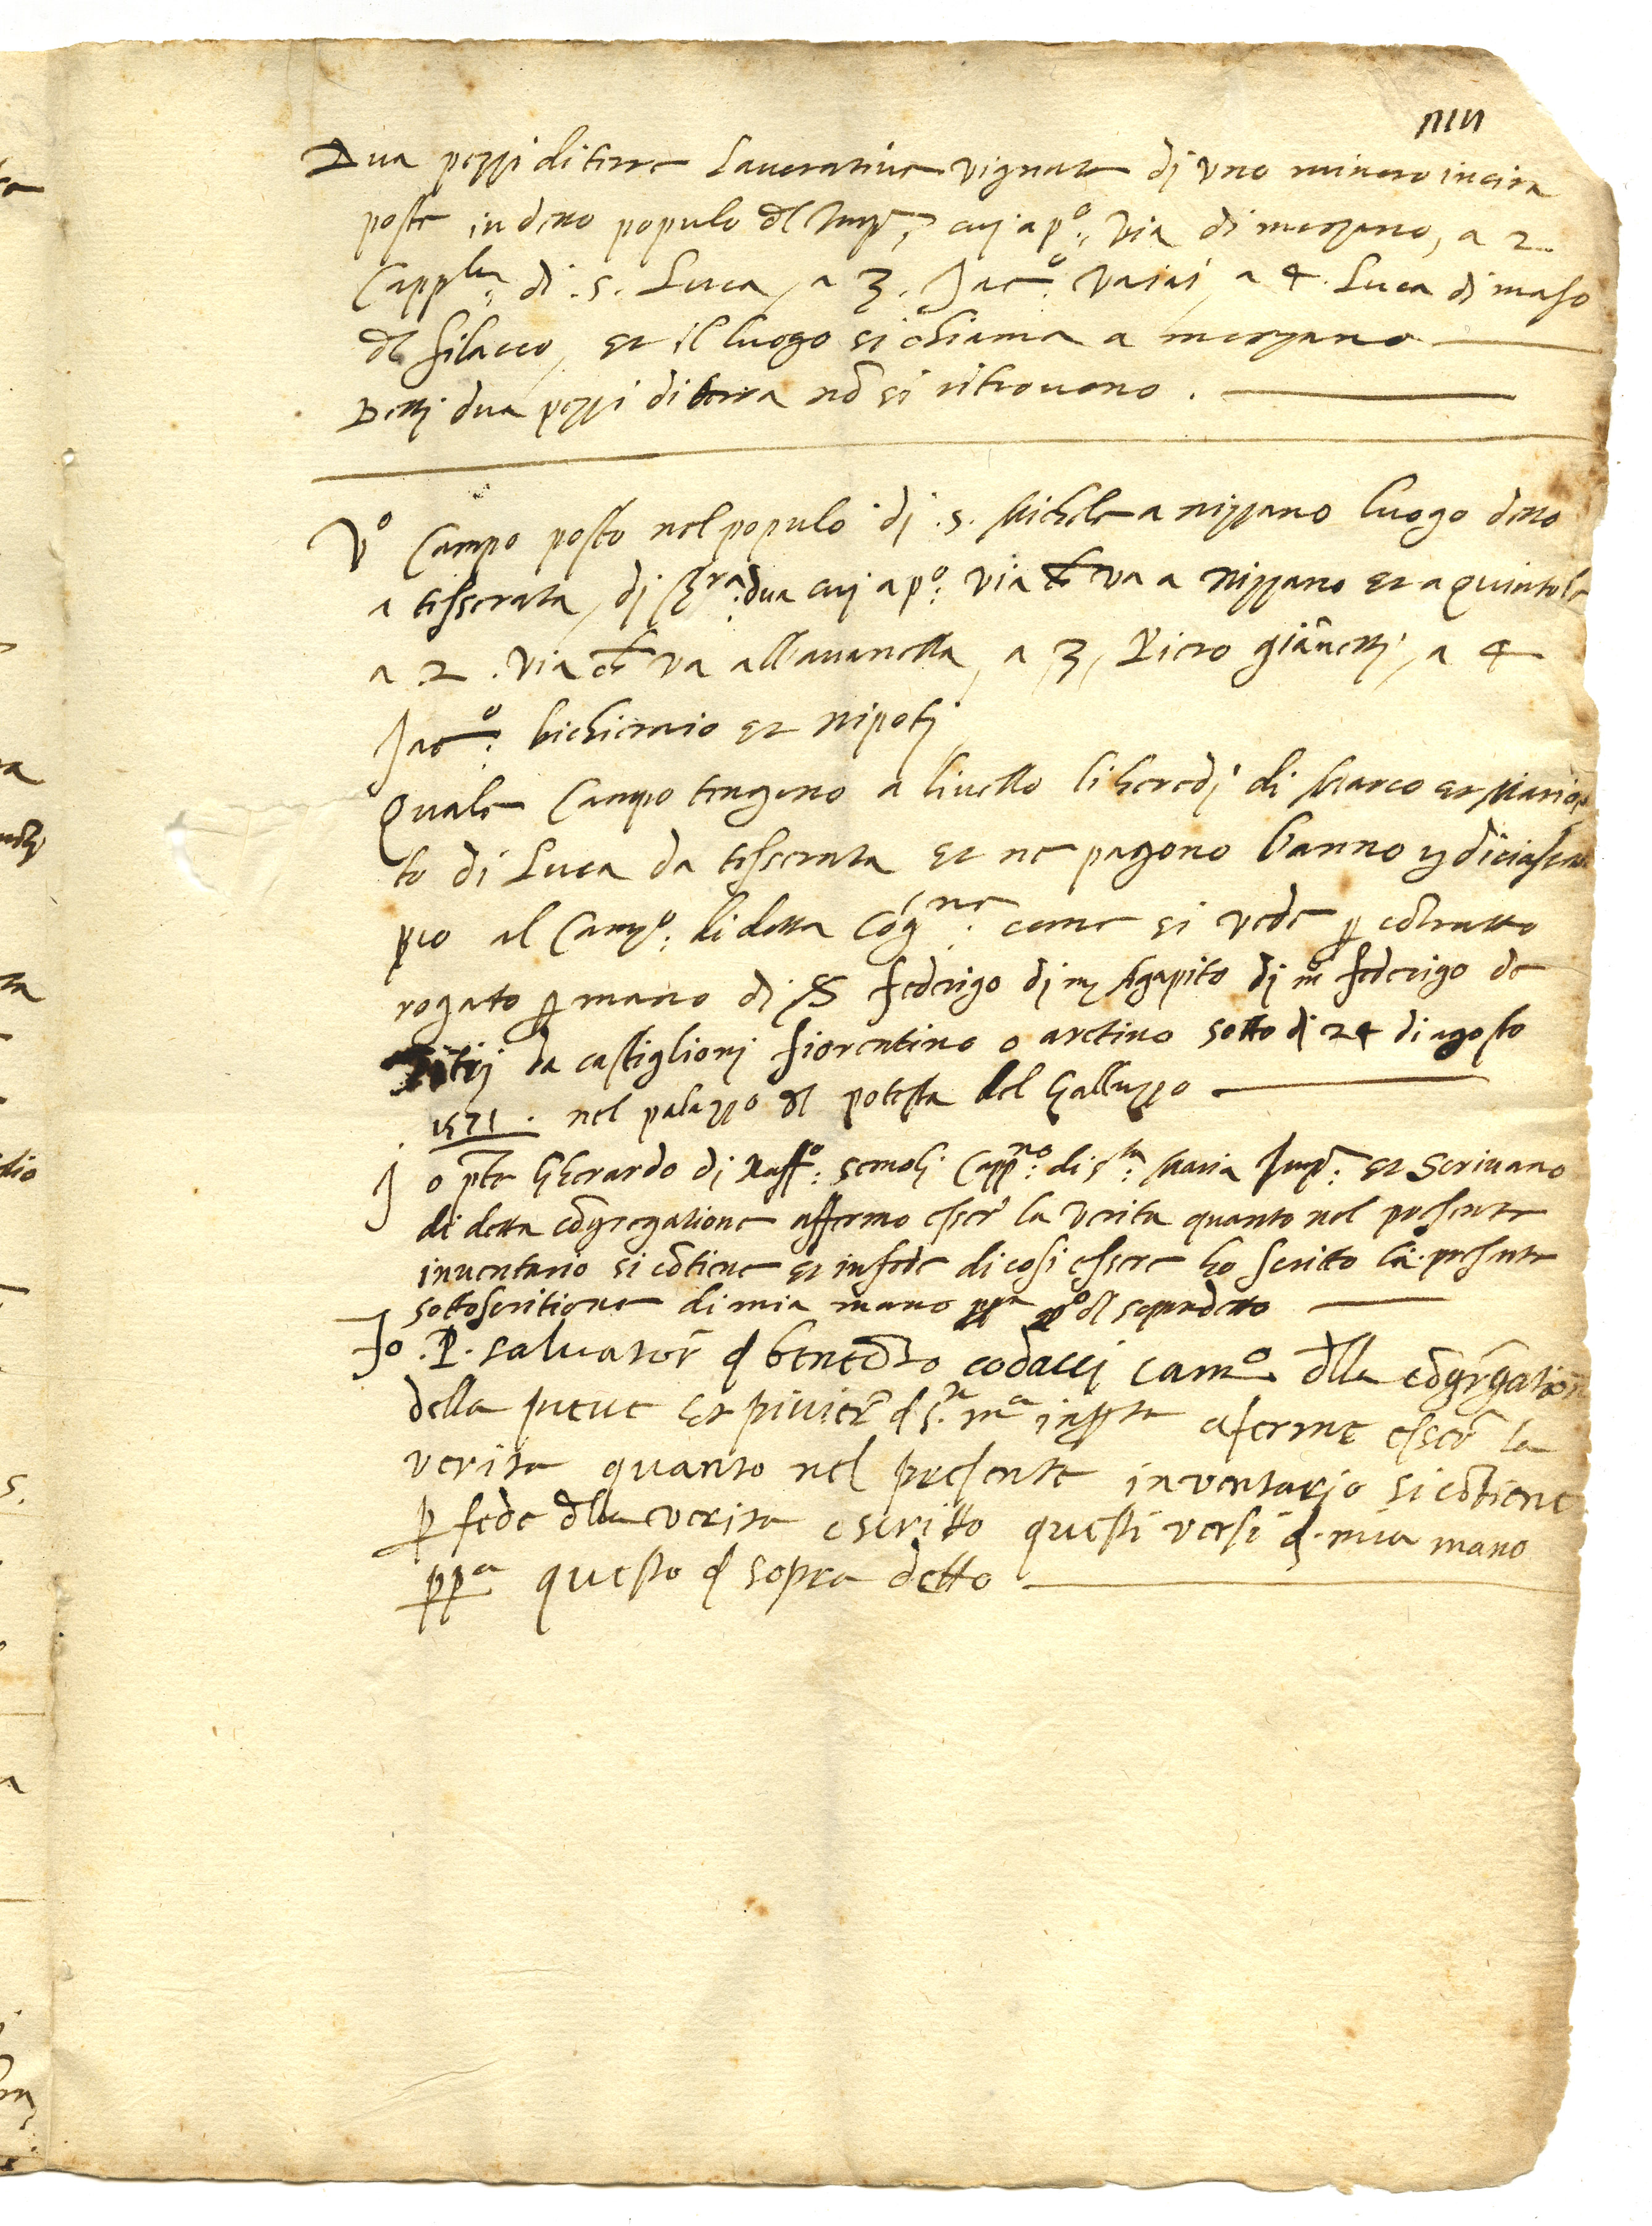 Dua pezzi di terre lavorative vignate dj uno incirca
poste in detto populo dl Impr.ª cuj a p.º via di mezzano, a 2
Capp.la di .s. Luca, a 3. Jac.º vaiai, a 4. Luca dj maso
dl filacco, et il luogo si chiama a mezzano
Dettj dua pezzi di terra nõ si ritrovono .
Vº Campo posto nel populo dj .s. Michele a nizzano luogo detto
a tisserata, dj dua cuj a p.º via ch va a Nizzano et a Quintole
a .2 . via ch va all'avanella, a 3, Piero giãnettj, a 4
Jac.º bichieraio et nipotj
Quale Campo tengono a livello li heredj di Marco et Mariot
to di Luca da tisserata et ne pagono l'anno
al Cam.º di detta Cõg.ne come si vede p cõtratto
rogato p mano dj S Federigo dj Agapito dj Federigo de
da castiglionj fiorentino o aretino sotto dj 24 di agosto
1571 . nel palazzo dl potesta del Galluzzo
Jo pte Gherardo dj Raff.º semolj Capp.no di s.ta Maria Impr.ª et Scrivano
di detta cõgregatione affermo esser la verita quanto nel presente
inventario si cõtiene et in fede di cosi essere ho scritto la presente
sottoscritione di mia mano pp.a dl sopradetto
Jo .P. salvator d benedetto codaccj cam.º dlla cõgrgatione
della pieve et pivier d s.ta m.a inpta afferme esser la
verita quanto nel presente inventario si cõtiene
p fede dlla verita o scritto questi versi d mia mano
pp.a questo d sopra detto